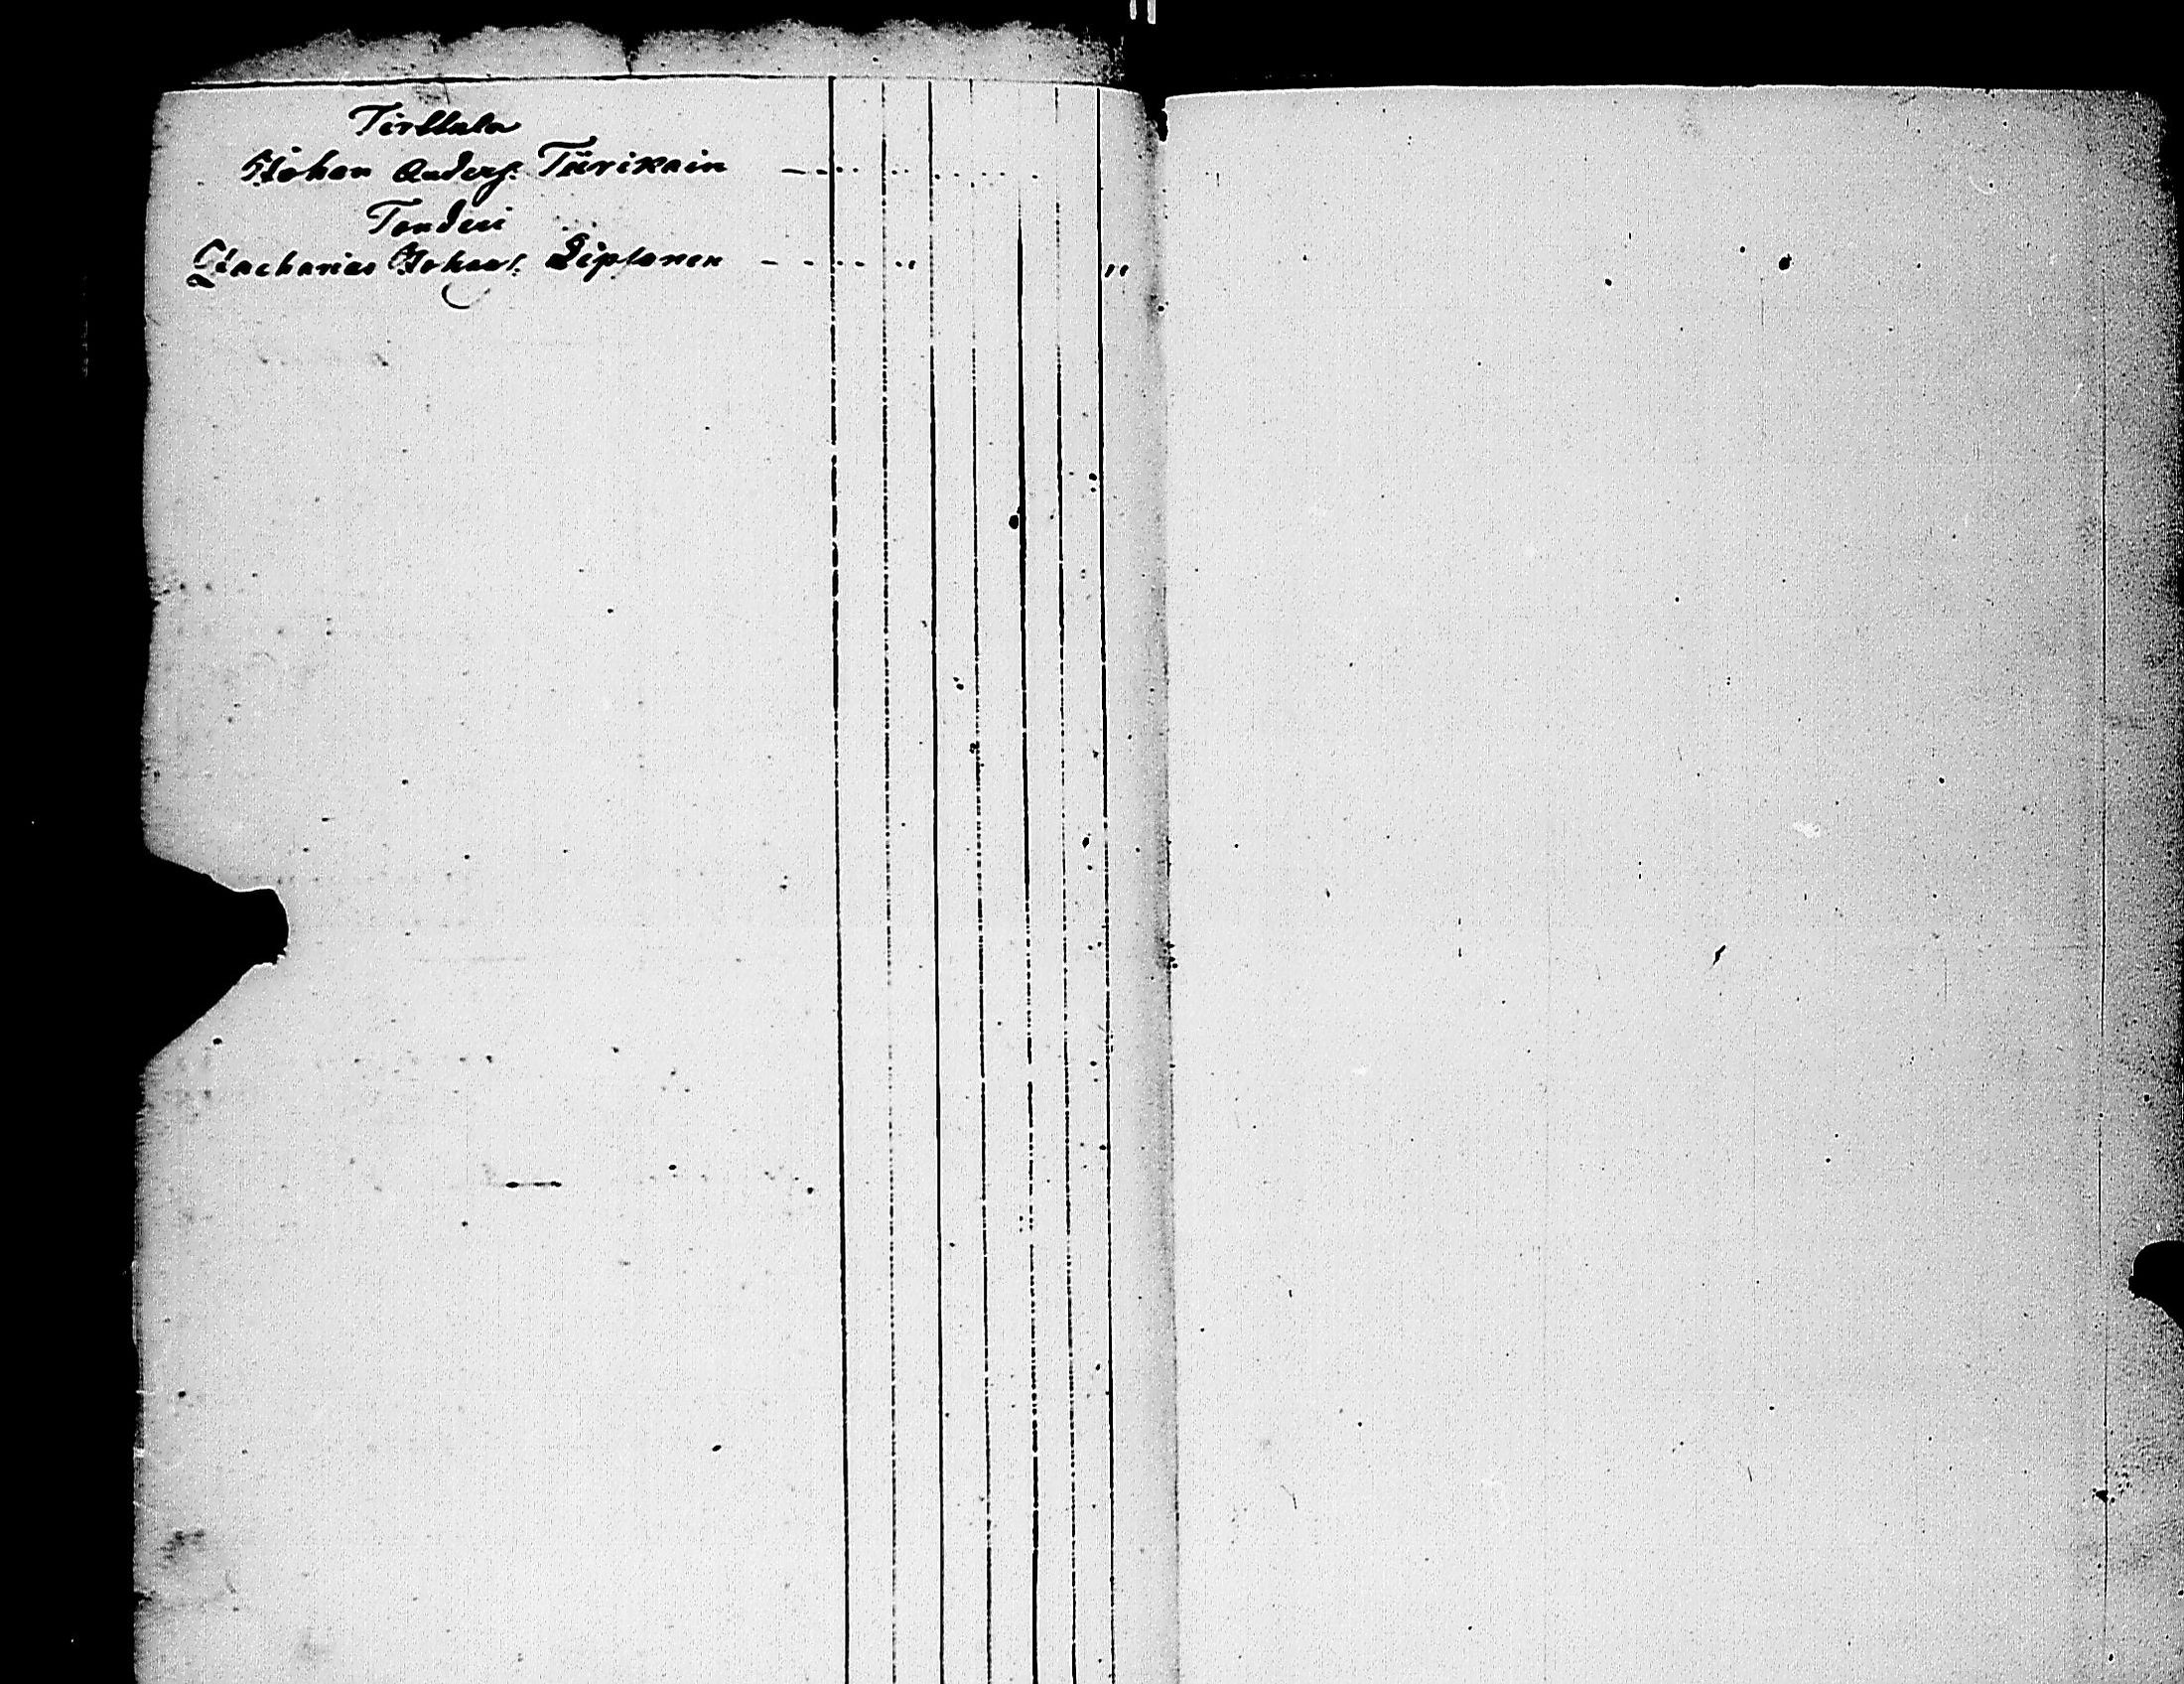 Tirttala
Johan Anders: Tiirikain
Tenderi
Zacharias Johans: Siplanen